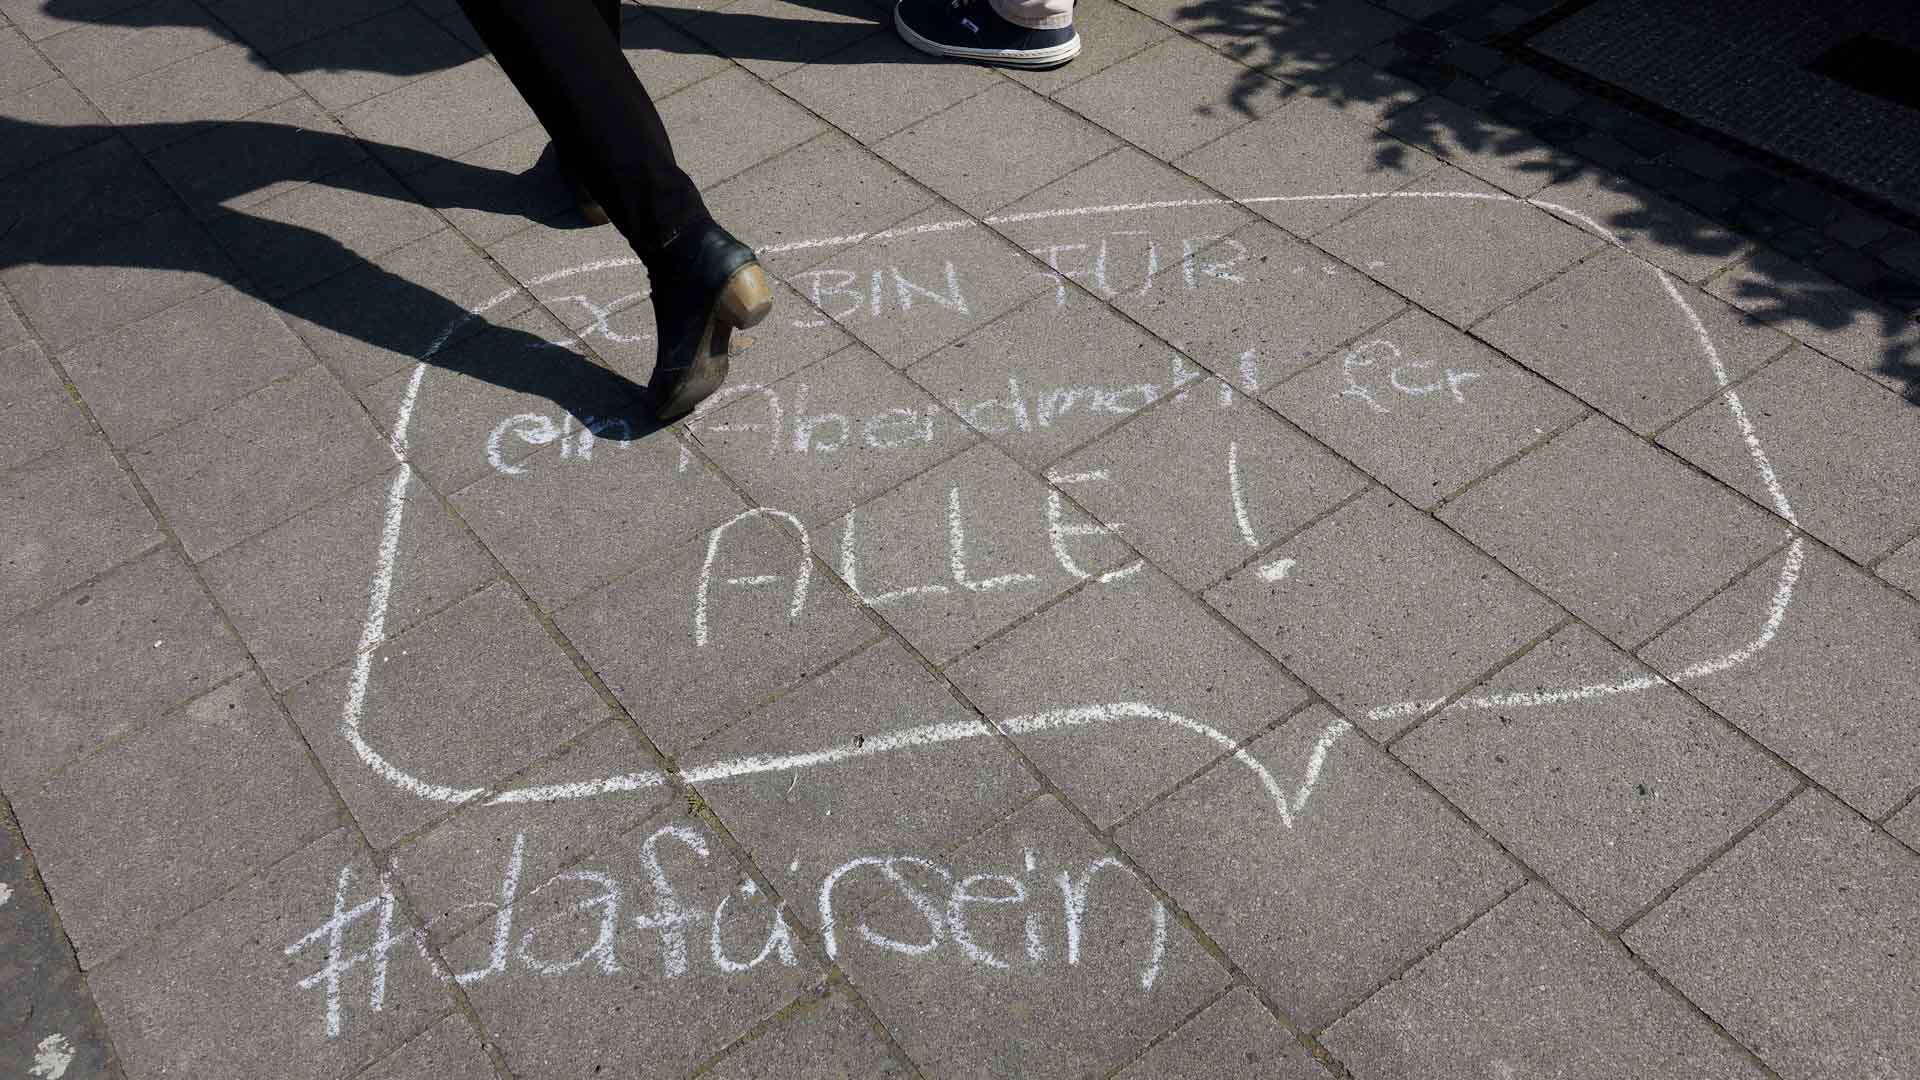 BIN FÜR...
ein Abendmahl für
ALLE!
#dafürsein